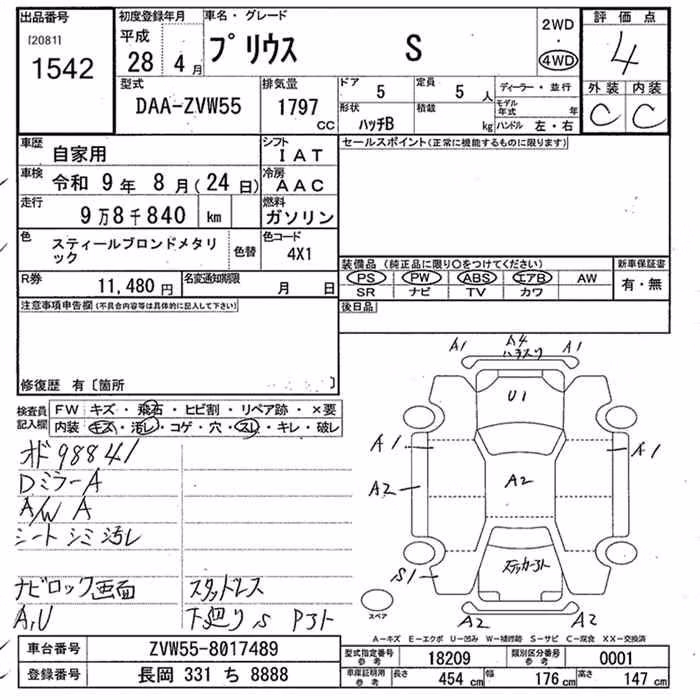 出品番号
[2081]
1542
初度登録年月
平成
28年 4月
車名・グレード
プリウス S
2WD
4WD
評価点
4
外装 内装
C C
型式
DAA-ZVW55
排気量
1797 CC
ドア 5
定員 5人
形状 ハッチB
積載 kg
ディーラー・並行
モデル年式 年
ハンドル 左・右
車歴 自家用
シフト IAT
車検 令和 9年 8月(24日)
冷房 AAC
走行 9万8千840 km
燃料 ガソリン
色 スティールブロンドメタリック
色替
色コード 4X1
R券 11,480円
名変通知期限 月 日
セールスポイント(正常に機能するものに限ります)
装備品 (純正品に限り○をつけてください)
PS PW ABS エアB AW
SR ナビ TV カワ
新車保証書
有・無
後日品
注意事項申告欄(不具合内容等は具体的に記入して下さい)
修復歴 有〔箇所
検査員記入欄
FW キズ・飛石・ヒビ割・リペア跡・×要
内装 キズ・汚レ・コゲ・穴・スレ・キレ・破レ
オド98841
DミラーA
A/W A
シート シミ 汚レ
ナビロック画面 スタットレス
A,U 下廻りS Pヨト
A1 A4 A1
ハネスリ
U1
A1 A1
A2 A2
S1
ステッカーヨト
A2 A2
スペア
A-キズ E-エクボ U-凹み W-補修跡 S-サビ C-腐食 XX-交換済
車台番号 ZVW55-8017489
登録番号 長岡 331 ち 8888
型式指定番号 参考 18209
類別区分番号 参考 0001
車庫証明用 参考 長さ 454 cm 幅 176 cm 高さ 147 cm